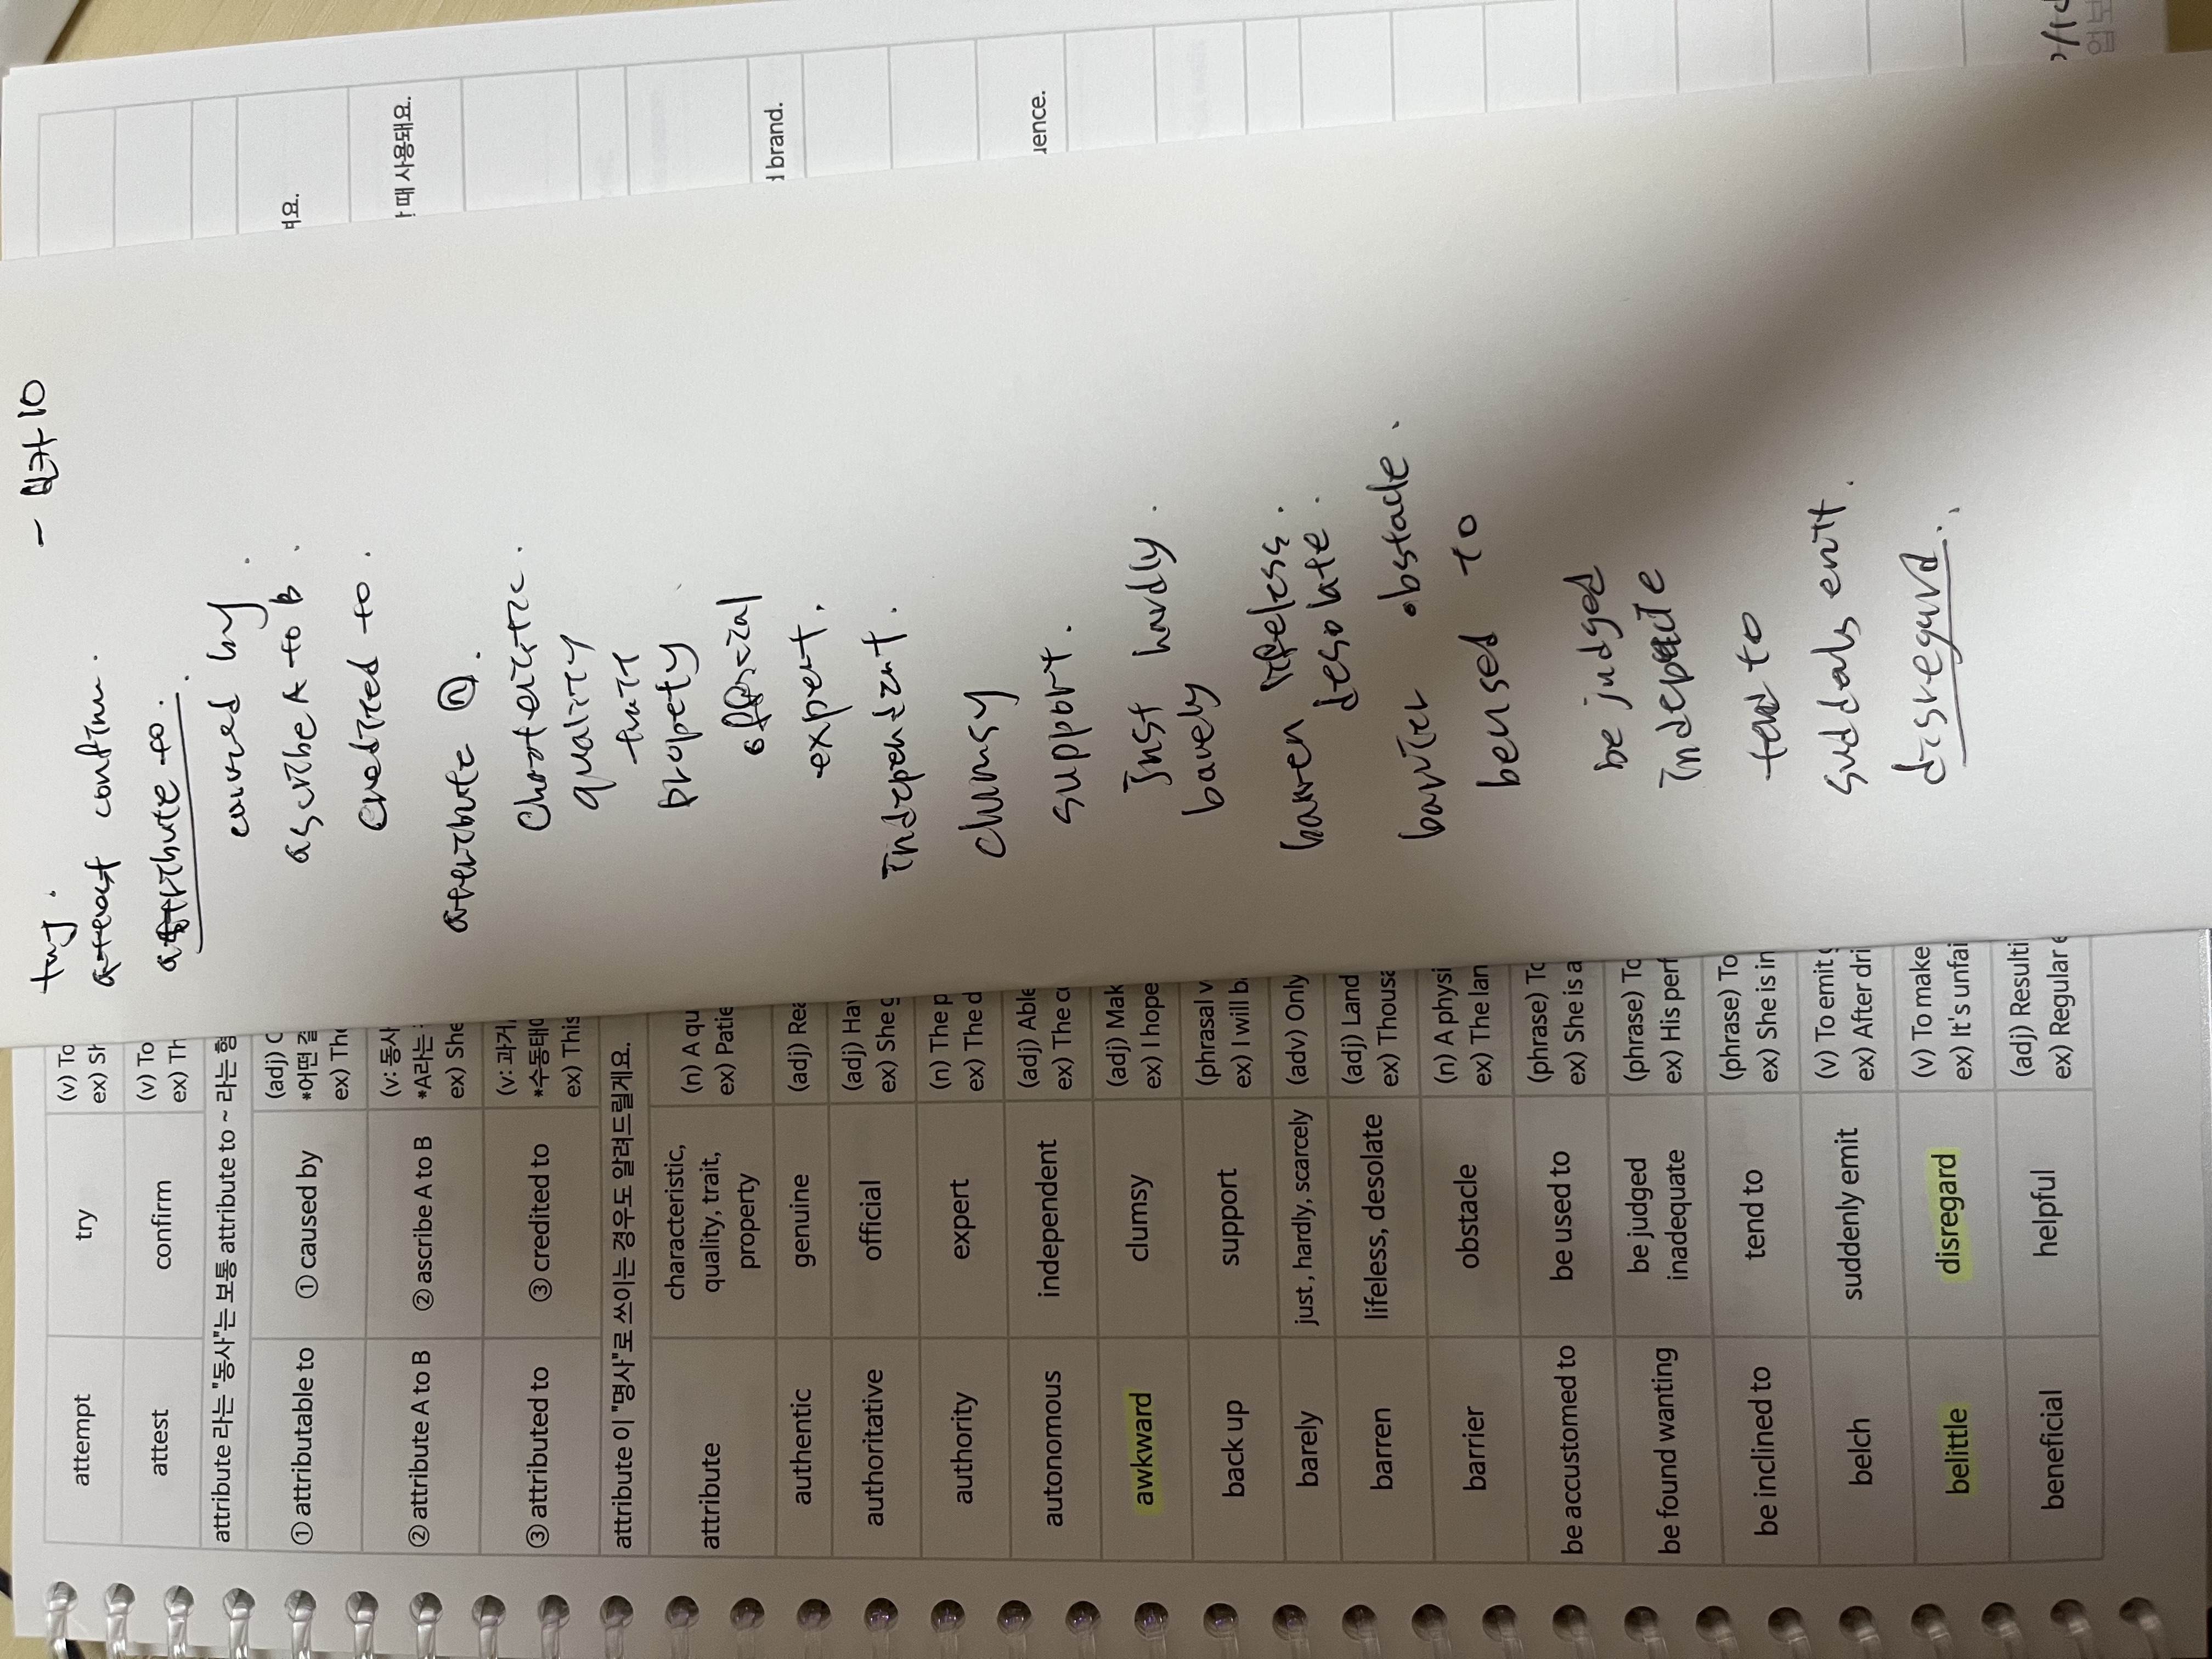 attempt
try
(v) To
ex) Sh
attest
confirm
(v) To
ex) Th
attribute 라는 "동사"는 보통 attribute to ~ 라는 형
① attributable to
① caused by
(adj) C
*어떤 결
ex) The
② attribute A to B
② ascribe A to B
(v: 동사
*A라는
ex) She
③ attributed to
③ credited to
(v: 과거
*수동태
ex) This
attribute 이 "명사"로 쓰이는 경우도 알려드릴게요.
attribute
characteristic,
quality, trait,
property
(n) A qu
ex) Patie
authentic
genuine
(adj) Rea
authoritative
official
(adj) Hav
ex) She g
authority
expert
(n) The p
ex) The d
autonomous
independent
(adj) Able
ex) The co
awkward
clumsy
(adj) Mak
ex) I hope
back up
support
(phrasal v
ex) I will b
barely
just , hardly, scarcely
(adv) Only
barren
lifeless, desolate
(adj) Land
ex) Thousa
barrier
obstacle
(n) A physi
ex) The lan
be accustomed to
be used to
(phrase) To
ex) She is a
be found wanting
be judged
inadequate
(phrase) To
ex) His perf
be inclined to
tend to
(phrase) To
ex) She is in
belch
suddenly emit
(v) To emit
ex) After dri
belittle
disregard
(v) To make
ex) It's unfai
beneficial
helpful
(adj) Resulti
ex) Regular e
try.
confirm.
attribute to.
by.
ascribe A to B.
credited to.
attribute ⓝ.
quality
propety
official
expert.
independent.
clumsy
support.
Just hardly.
barely
barren lifeless.
desolate.
barrier obstacle.
be used to
be judged
tend to
emit.
disregard.
여요.
때 사용돼요.
d brand.
uence.